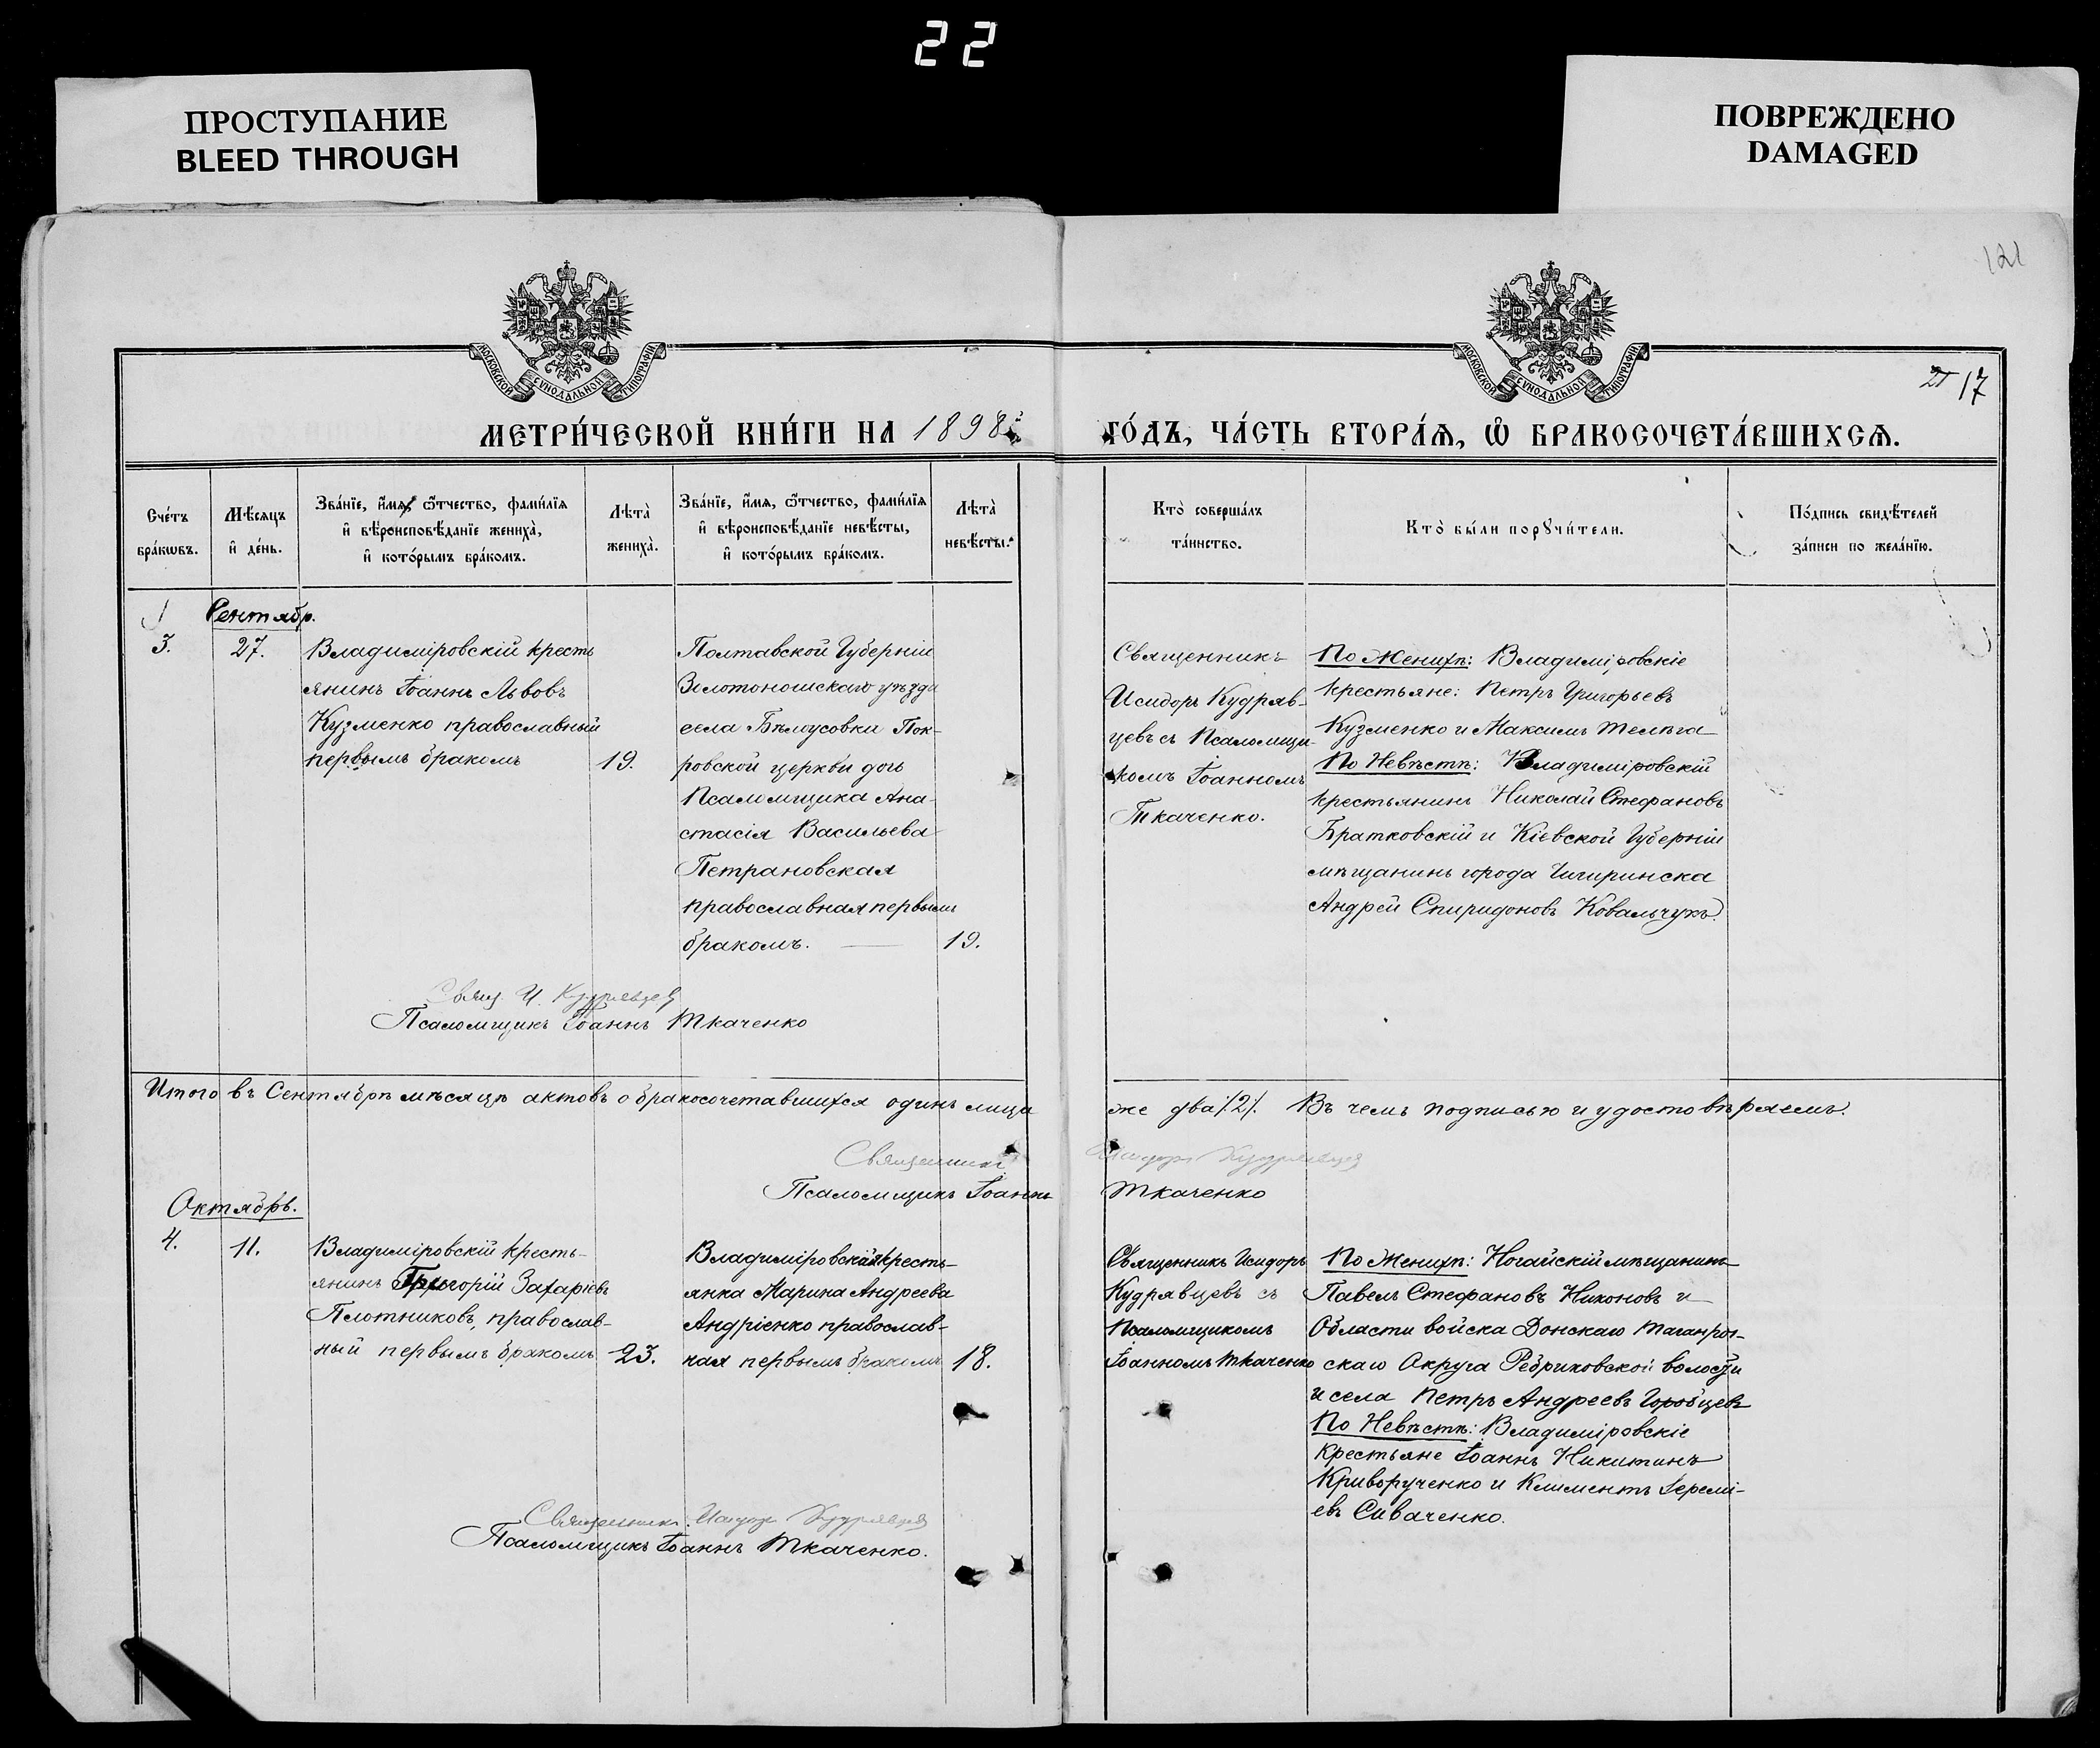 22
ПРОСТУПАНИЕ
BLEED THROUGH
ПОВРЕЖДЕНО
DAMAGED
121
МОСКОВСКОЙ СѴНОДАЛЬНОЙ ТИПОГРАФІИ
МОСКОВСКОЙ СѴНОДАЛЬНОЙ ТИПОГРАФІИ
17
МЕТРИ́ЧЕСКОЙ КНИ́ГИ НА 1898
ГО́ДЪ, ЧА́СТЬ ВТОРА́Ѧ, Ѡ҆ БРАКОСОЧЕТА́ВШИХСѦ.
Сче́тъ
бра́кѡвъ.
Мѣ́сяцъ
и҆ де́нь.
Зва́нїе, и҆́мѧ, ѻ҆́тчество, фами́лїѧ
и҆ вѣроисповѣ́данїе жениха̀,
и҆ кото́рымъ бра́комъ.
Лѣ́та̀
жениха̀.
Зва́нїе, и҆́мѧ, ѻ҆́тчество, фами́лїѧ
и҆ вѣроисповѣ́данїе невѣ́сты,
и҆ кото́рымъ бра́комъ.
Лѣ́та̀
невѣ́сты.
Кто̀ соверша́лъ
та́инство.
Кто̀ бы́ли порꙋчи́тели.
По́дпись свидѣ́телей
за́писи по жела́нїю.
Сентябр.
3.
27.
Владиміровскій кресть
янинъ Іоаннъ Львовъ
Кузменко православный
первымъ бракомъ
19.
Полтавской Губерніи
Золотоношскаго уѣзда
села Бѣлоусовки Пок-
ровской церкви дочь
Псаломщика Ана-
стасія Васильева
Петрановская
православная первымъ
бракомъ.
19.
Священникъ
Исидоръ Кудряв-
цевъ съ Псаломщи-
комъ Іоанномъ
Ткаченко.
По Женихѣ: Владиміровскіе
крестьяне: Петръ Григорьевъ
Кузменко и Максимъ Телѣга
По Невѣстѣ: Владиміровскій
крестьянинъ Николай Стефановъ
Братковскій и Кіевской Губерніи
мѣщанинъ города Чигиринска
Андрей Спиридоновъ Ковальчукъ.
Свящ. И. Кудрявцев
Псаломщикъ Іоаннъ Ткаченко
Итого въ Сентябрѣ мѣсяцѣ актовъ о бракосочетавшихся одинъ лица
же два /2/. Въ чемъ подписью и удостовѣряемъ.
Священникъ
Исидоръ Кудрявцев
Псаломщикъ Іоаннъ
Ткаченко
Октябрь.
4.
11.
Владиміровскій кресть-
янинъ Григорій Захаріевъ
Плотниковъ, православ-
ный первымъ бракомъ
23.
Владиміровская кресть-
янка Марина Андреева
Андріенко православ-
ная первымъ бракомъ
18.
Священникъ Исидоръ
Кудрявцевъ съ
Псаломщикомъ
Іоанномъ Ткаченко
По Женихѣ: Ногайскій мѣщанинъ
Павелъ Стефановъ Никоновъ и
Области войска Донскаго Таганрог-
скаго Округа Ребриковской волости
и села Петръ Андреевъ Горобцевъ
По Невѣстѣ: Владиміровскіе
Крестьяне Іоаннъ Никитинъ
Криворученко и Климентъ Іеремі-
евъ Сиваченко.
Священникъ Исидоръ Кудрявцев
Псаломщикъ Іоаннъ Ткаченко.